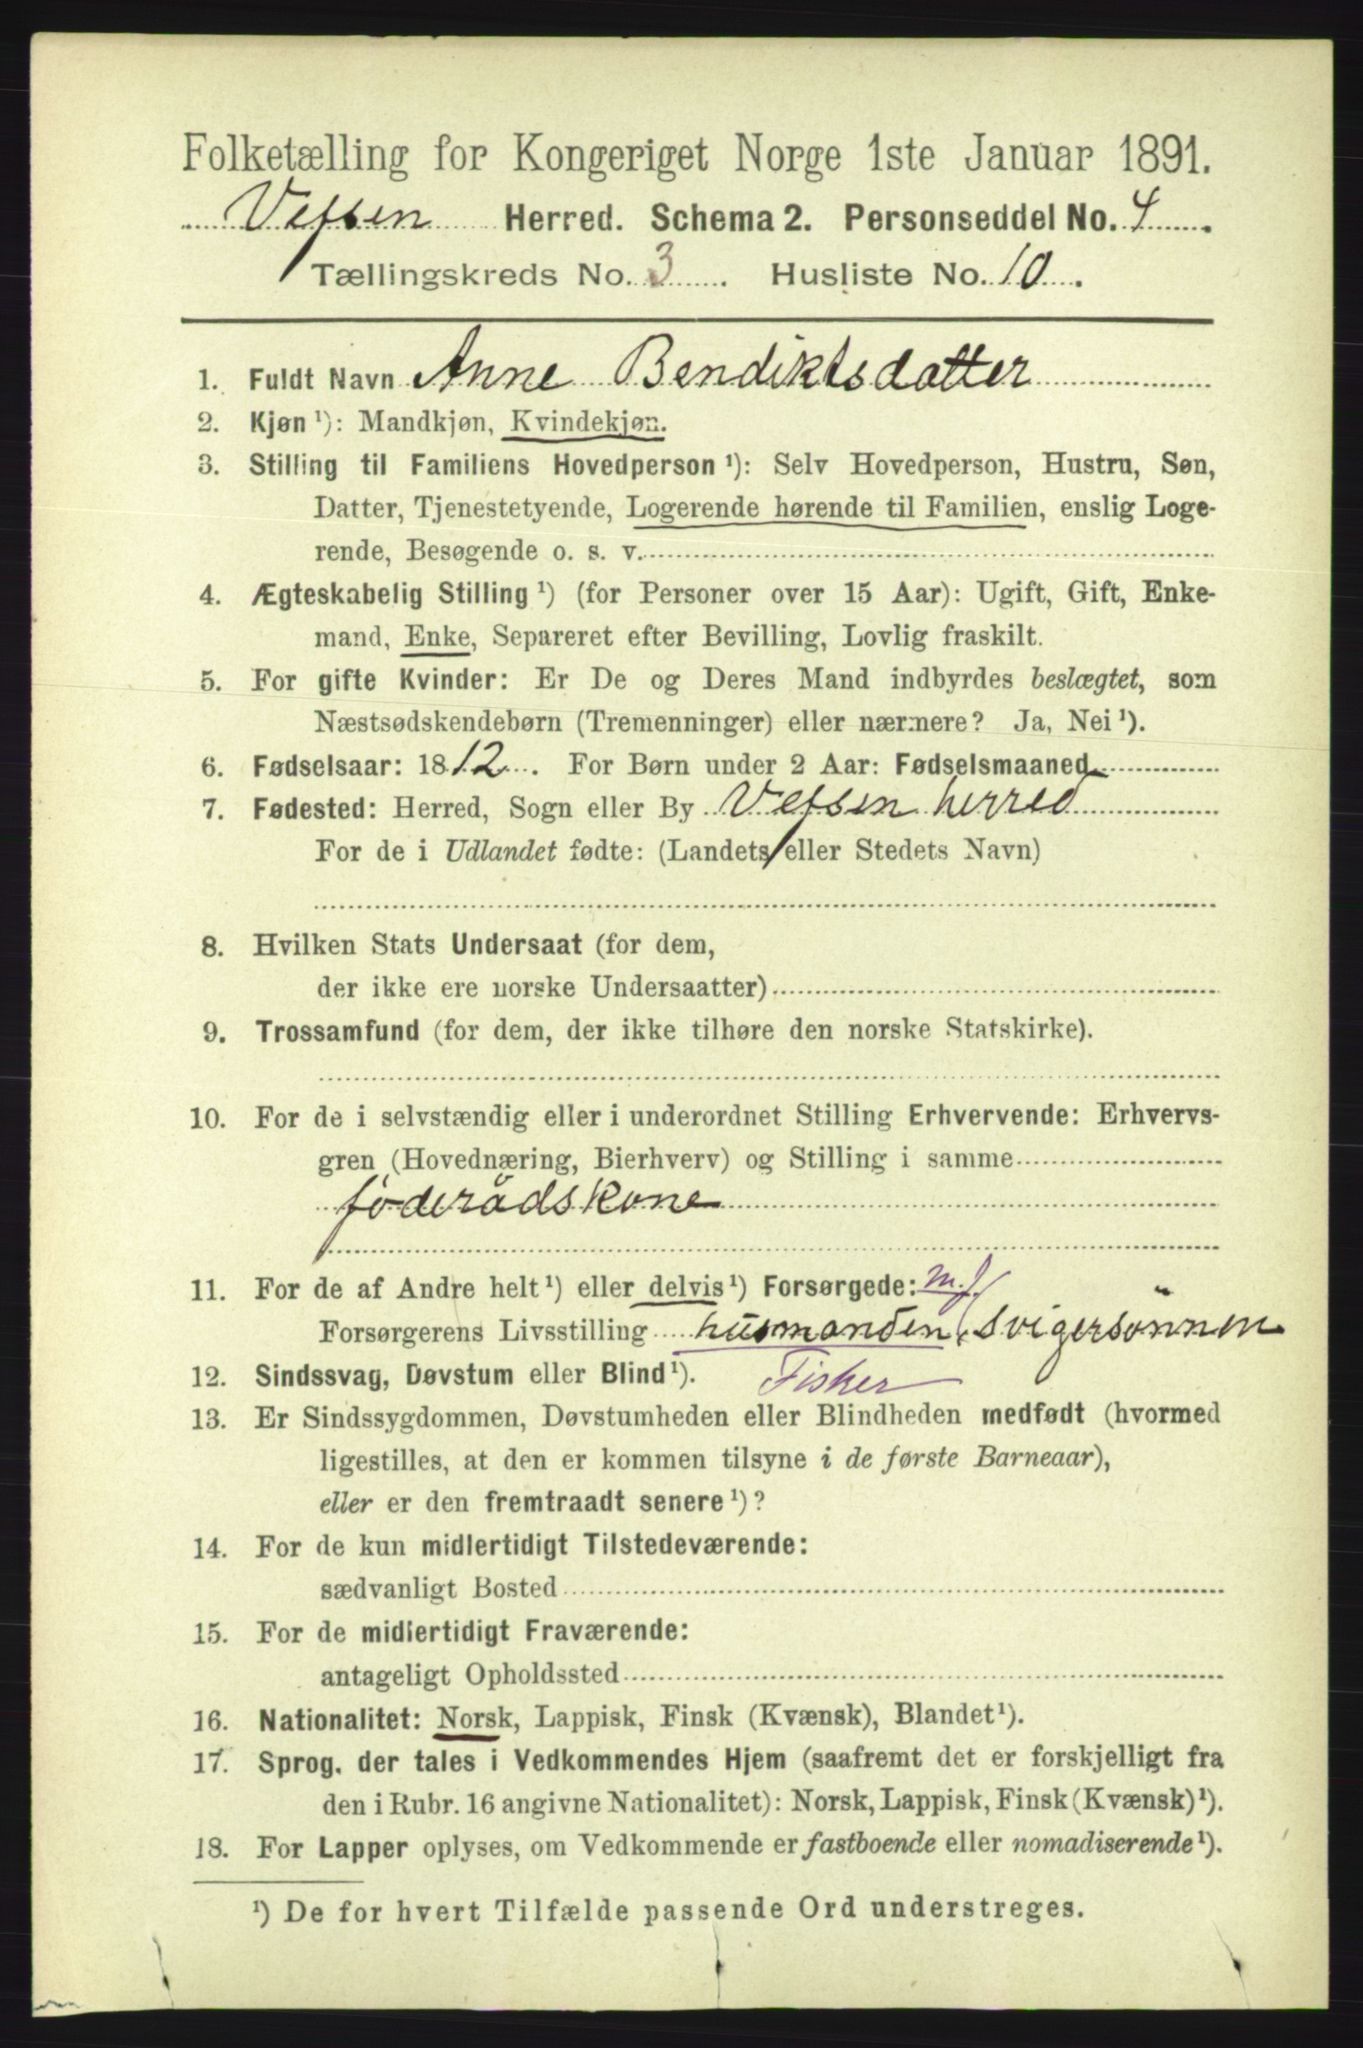 Folketælling for Kongeriget Norge 1ste Januar 1891.
Vefsen Herred. Schema 2. Personseddel No. 4
Tællingskreds No. 3. Husliste No. 10.
1. Fuldt Navn Anne Bendiktsdatter
2. Kjøn ¹): Mandkjøn, Kvindekjøn.
3. Stilling til Familiens Hovedperson ¹): Selv Hovedperson, Hustru, Søn,
Datter, Tjenestetyende, Logerende hørende til Familien, enslig Loge-
rende, Besøgende o. s. v.
4. Ægteskabelig Stilling ¹) (for Personer over 15 Aar): Ugift, Gift, Enke-
mand, Enke, Separeret efter Bevilling, Lovlig fraskilt.
5. For gifte Kvinder: Er De og Deres Mand indbyrdes beslægtet, som
Næstsødskendebørn (Tremenninger) eller nærmere? Ja, Nei ¹).
6. Fødselsaar: 1812. For Børn under 2 Aar: Fødselsmaaned
7. Fødested: Herred, Sogn eller By Vefsen herred
For de i Udlandet fødte: (Landets eller Stedets Navn)
8. Hvilken Stats Undersaat (for dem,
der ikke ere norske Undersaatter)
9. Trossamfund (for dem, der ikke tilhøre den norske Statskirke).
10. For de i selvstændig eller i underordnet Stilling Erhvervende: Erhvervs-
gren (Hovednæring, Bierhverv) og Stilling i samme
föderådskone
11. For de af Andre helt ¹) eller delvis ¹) Forsørgede: m.f.
Forsørgerens Livsstilling husmanden, Svigersönnen
12. Sindssvag, Døvstum eller Blind ¹). Fisker
13. Er Sindssygdommen, Døvstumheden eller Blindheden medfødt (hvormed
ligestilles, at den er kommen tilsyne i de første Barneaar),
eller er den fremtraadt senere ¹)?
14. For de kun midlertidigt Tilstedeværende:
sædvanligt Bosted
15. For de midlertidigt Fraværende:
antageligt Opholdssted
16. Nationalitet: Norsk, Lappisk, Finsk (Kvænsk), Blandet ¹).
17. Sprog, der tales i Vedkommendes Hjem (saafremt det er forskjelligt fra
den i Rubr. 16 angivne Nationalitet): Norsk, Lappisk, Finsk (Kvænsk) ¹).
18. For Lapper oplyses, om Vedkommende er fastboende eller nomadiserende ¹).
¹) De for hvert Tilfælde passende Ord understreges.